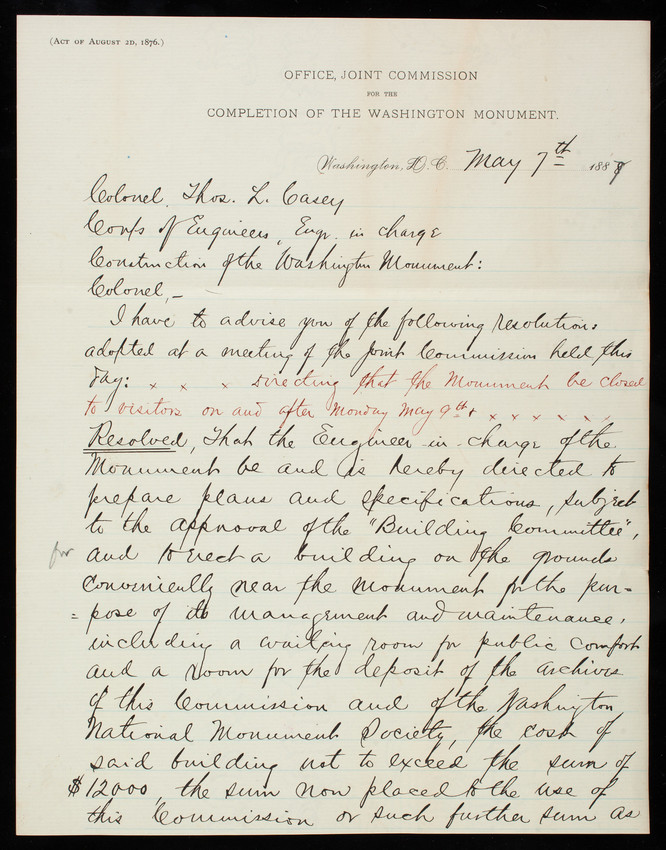 (ACT OF AUGUST 2D, 1876.)
OFFICE, JOINT COMMISSION
FOR THE
COMPLETION OF THE WASHINGTON MONUMENT.
Washington, D. C. May 7th 1888
Colonel Thos. L. Casey
Corps of Engineers, Engr. in charge
Construction of the Washington Monument:
Colonel,–
I have to advise you of the following resolutions
adopted at a meeting of the Joint Commission held this
day: x x x directing that the Monument be closed
to visitors on and after Monday May 9th x x x x x x
Resolved, That the Engineer in charge of the
Monument be and is hereby directed to
prepare plans and specifications, subject
to the approval of the "Building Committee",
for and to erect a building on the grounds
conveniently near the monument for the pur=
=pose of its management and maintenance,
including a waiting room for public comfort
and a room for the deposit of the archives
of this Commission and of the Washington
National Monument Society, the cost of
said building not to exceed the sum of
$12000, the sum now placed to the use of
this Commission or such further sum as